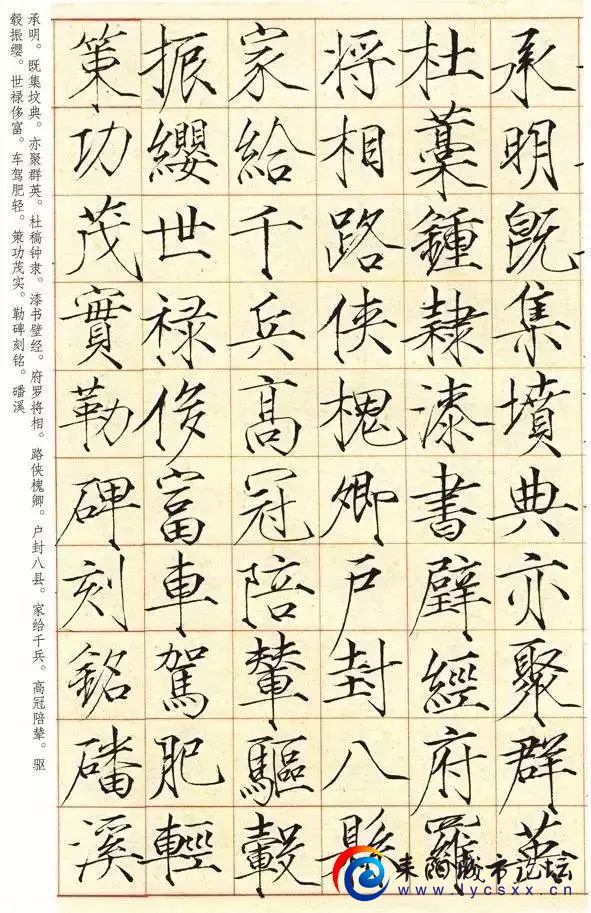 承明既集墳典亦聚群英
杜藁鍾隸漆書壁經府羅
將相路俠槐卿戶封八縣
家給千兵高冠陪輦驅轂
振纓世禄侈富車駕肥輕
策功茂實勒碑刻銘磻溪
承明。既集坟典。亦聚群英。杜稿钟隶。漆书壁经。府罗将相。路侠槐卿。户封八县。家给千兵。高冠陪辇。驱
毂振缨。世禄侈富。车驾肥轻。策功茂实。勒碑刻铭。磻溪
耒阳城市论坛
www.lycsxx.cn